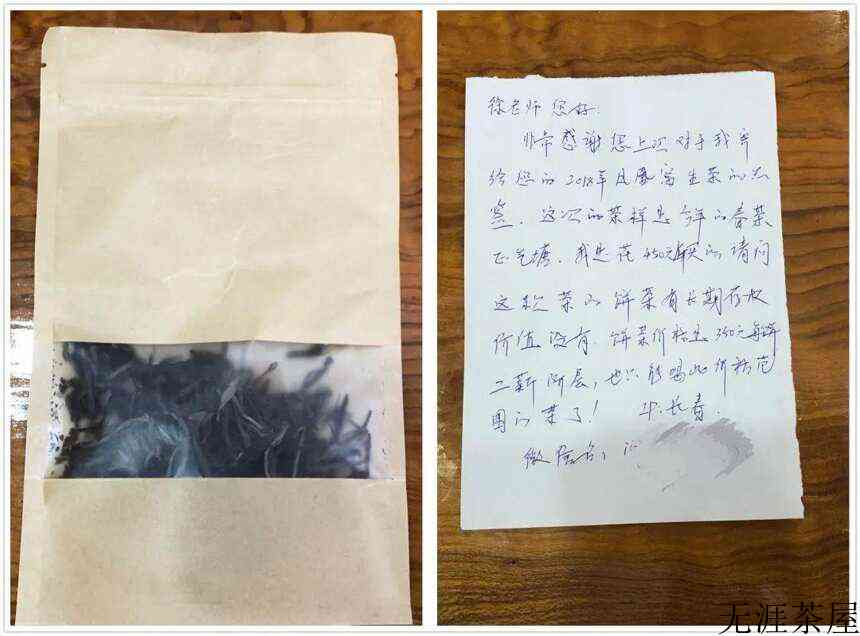 徐老师您好:
非常感谢您上次对于我寄
给您的2018年且曼富生茶的点
这次的茶样是今年的春茶
正气塘. 我是花450元买的请问
这种茶的饼茶有长期存放
价值没有. 饼茶价格是350元每饼
工薪阶层, 也只能喝此价格范
围的茶了! 长春.
微信名:
无涯茶屋